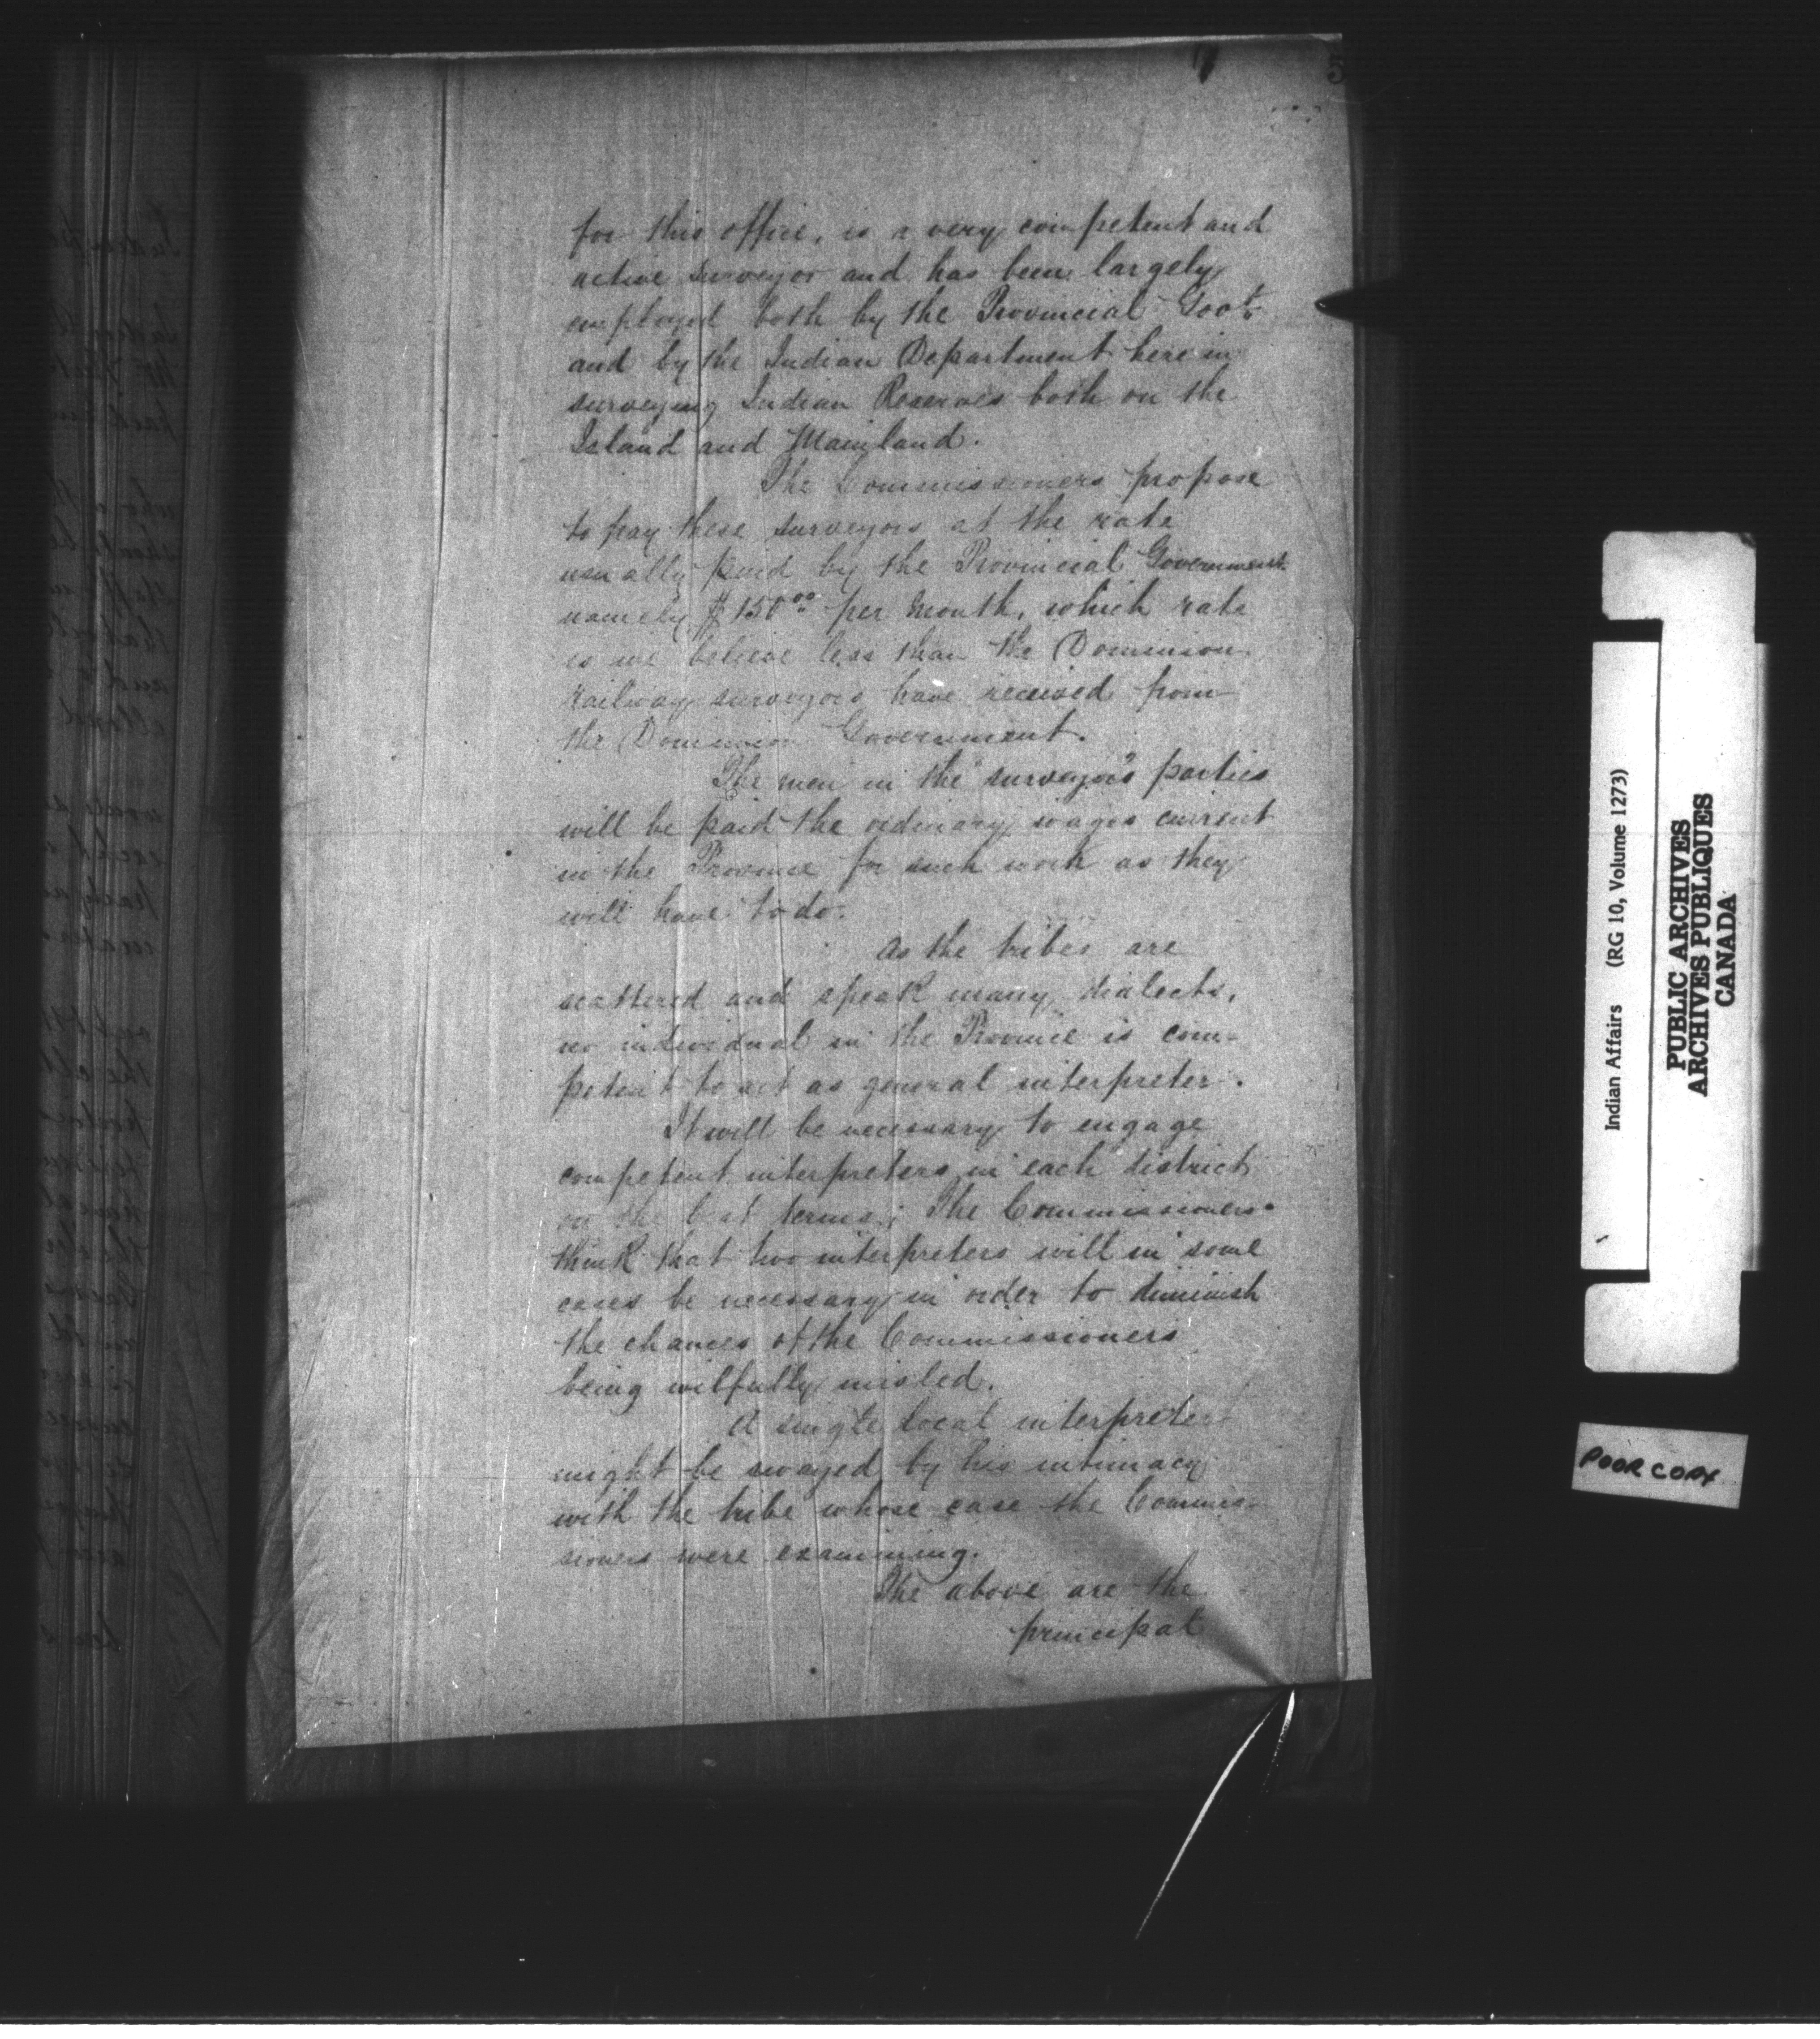 5
for this office, is a very competent and
active surveyor and has been largely
employed both by the Provincial Govt.
and by the Indian Department here in
surveying Indian Reserves both on the
Island and Mainland.
The Commissioners propose
to pay these surveyors at the rate
usually paid by the Provincial Government
namely $150.00 per month, which rate
is we believe less than the Dominion
railway surveyors have received from
the Dominion Government.
The men in the surveyor's parties
will be paid the ordinary wages current
in the Province for such work as they
will have to do.
As the tribes are
scattered and speak many dialects,
no individual in the Province is com-
petent to act as general interpreter.
It will be necessary to engage
competent interpreters in each district
on the best terms; The Commissioners
think that two interpreters will in some
cases be necessary in order to diminish
the chances of the Commissioners
being wilfully misled.
A single local interpreter
might be swayed by his intimacy
with the tribe whose case the Commis-
sioners were examining.
The above are the
principal
Indian Affairs (RG 10, Volume 1273)
PUBLIC ARCHIVES
ARCHIVES PUBLIQUES
CANADA
POOR COPY